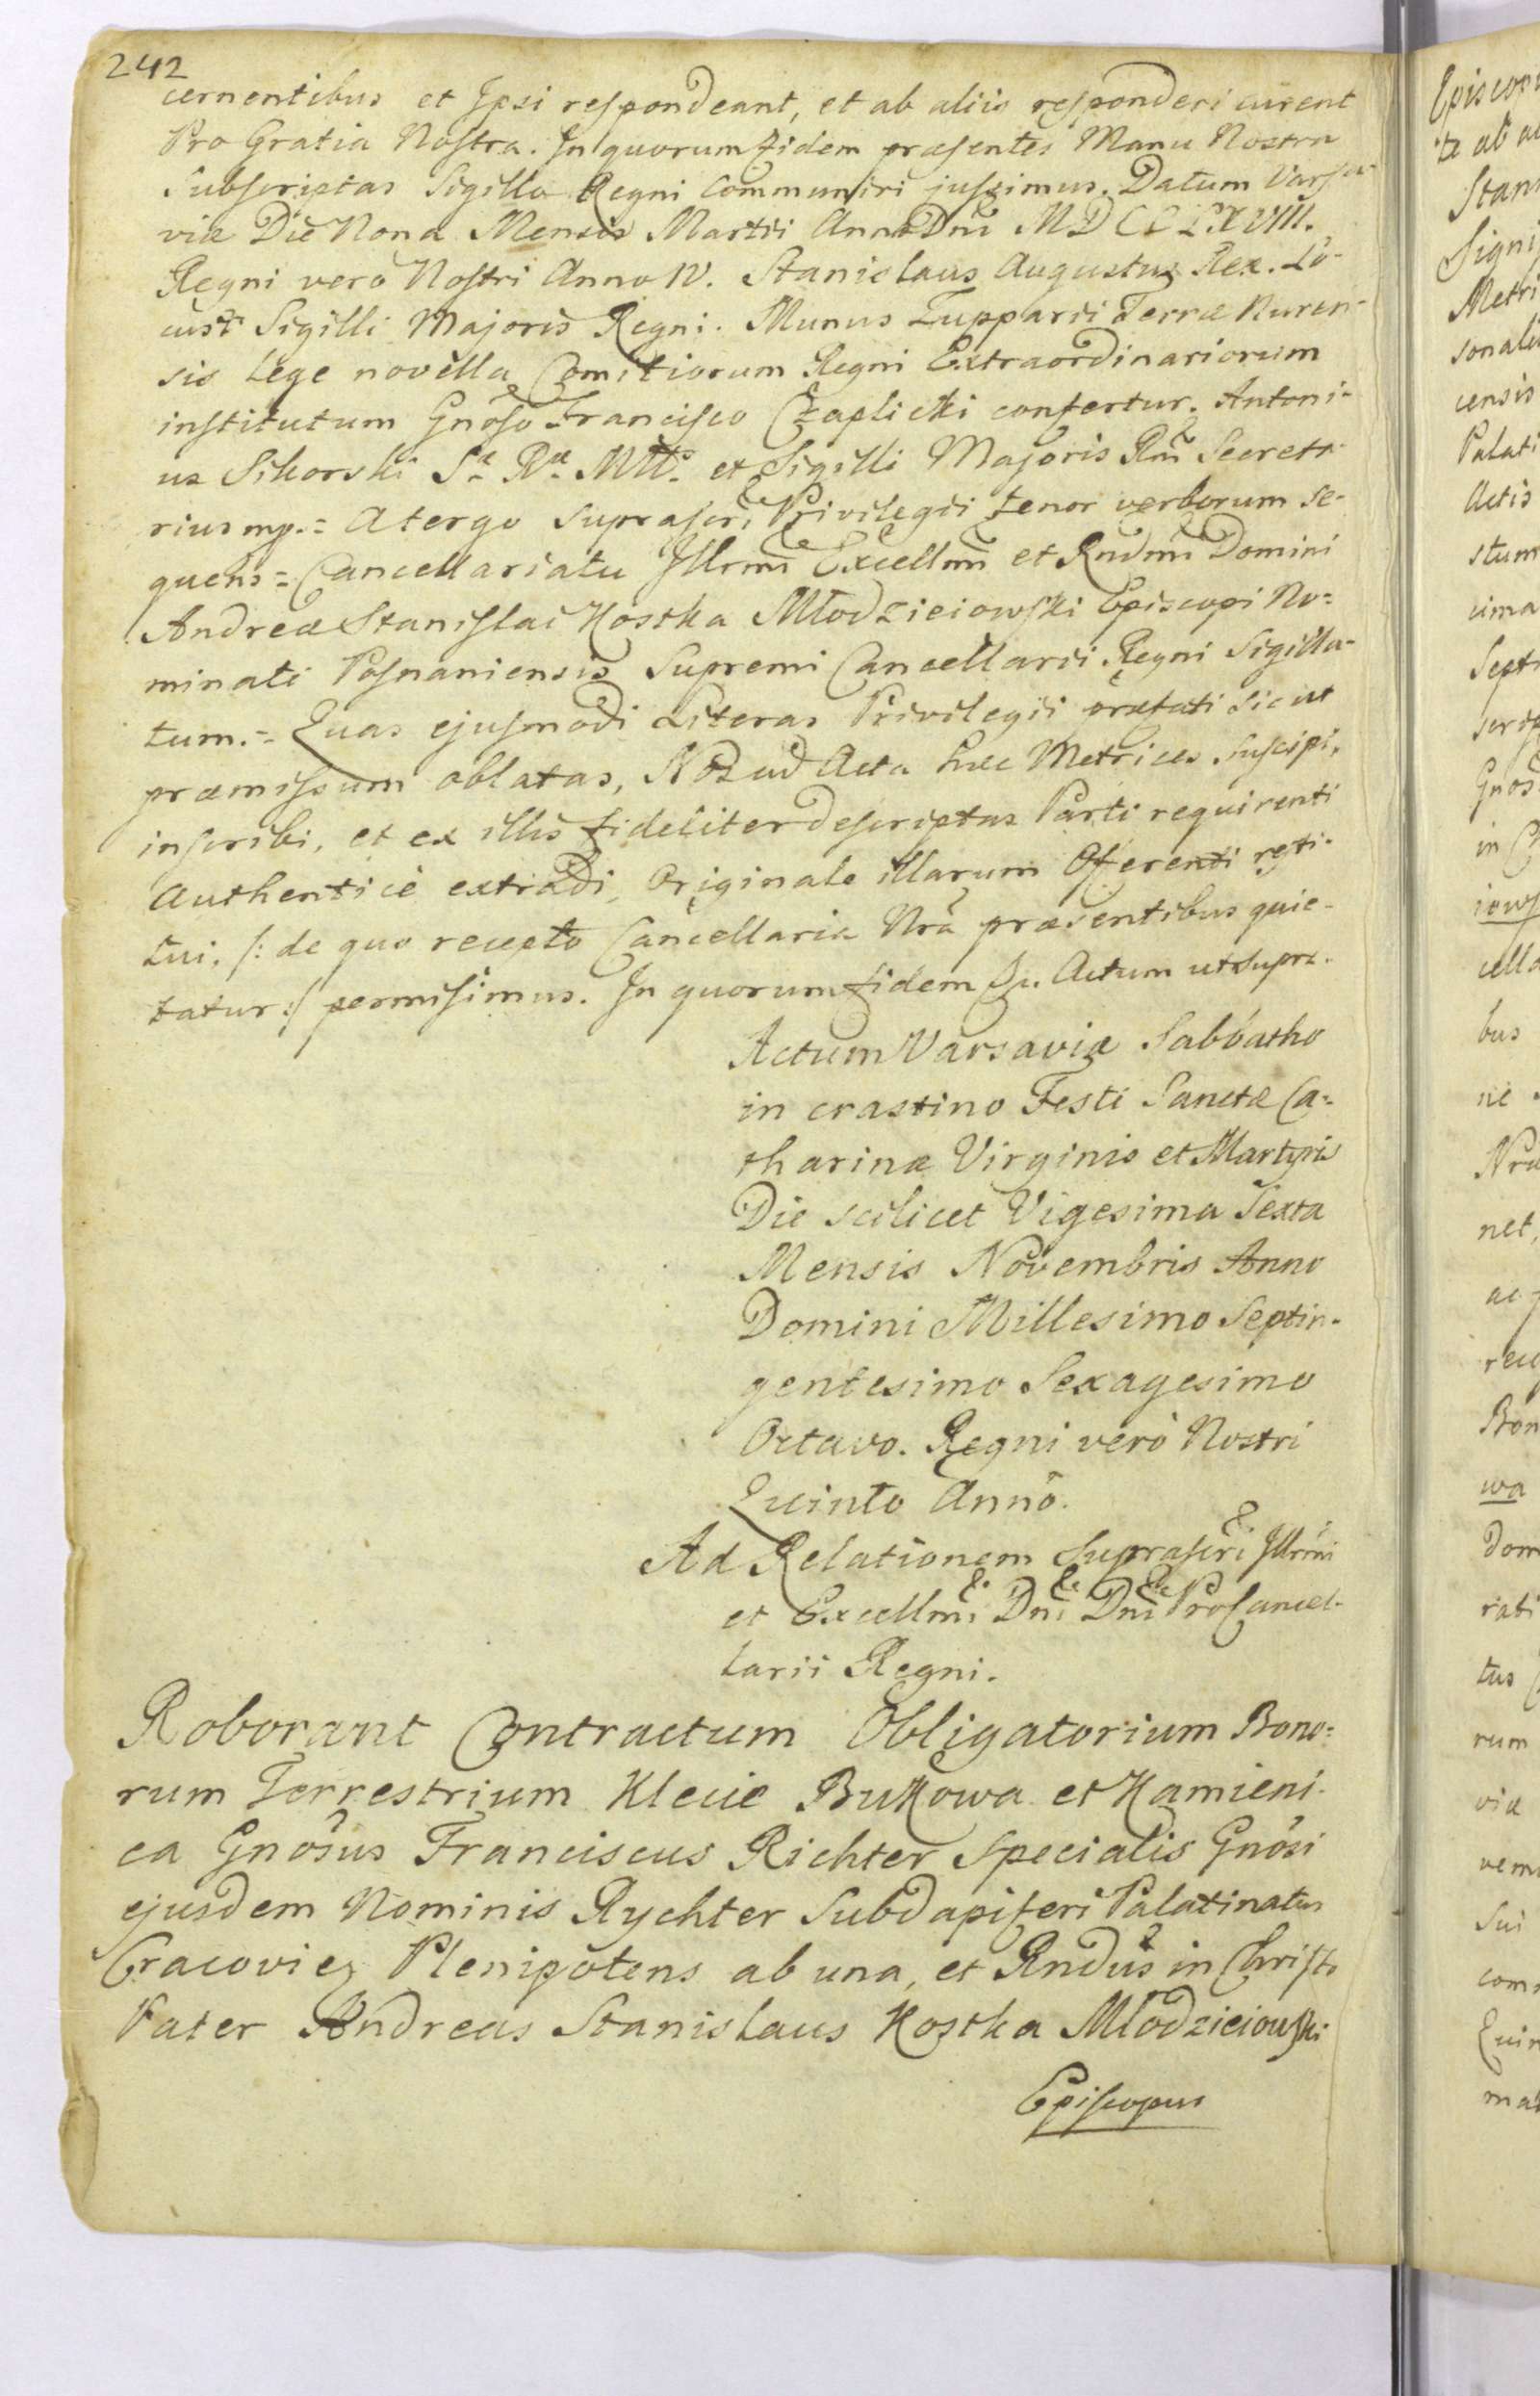 242
cernentibus et Ipsi respondeant, et ab aliis responderi curent
Pro Gratia Nostra. In quorum fidem præsentes Manu Nostra
Subscriptas Sigillo Regni Communiri jussimus. Datum Varsa-
viæ Die Nona Mensis Martii Anno Dni MDCCLXVIII.
Regni vero Nostri Anno IV. Stanislaus Augustus Rex. Lo-
cus Sigilli Majoris Regni. Munus Łupparii Terræ Nuren-
sis Lege novella Comitiorum Regni Extraordinariorum
institutum Gnoso Francisco Czaplicki confertur. Antoni-
us Sikorski Sæ Ræ Mttis et Sigilli Majoris Rni Secreta-
rius mp. = A tergo suprascri Privilegii tenor verborum se-
quens = Cancellariatu Illrmi Excellmi et Rndmi Domini
Andreæ Stanislai Kostka Młodzieiowski Episcopi No=
minati Posnaniensis Supremi Cancellarii Regni Sigilla-
tum. = Quas ejusmodi Literas Privilegii præfati sicut
præmissum oblatas, Nos ad Acta hæc Metrices suscipi,
inscribi, et ex illis fideliter descriptas Parti requirenti
Authenticè extradi, Originale illarum Offerenti resti-
tui, /: de quo recepto Cancellaria Nra præsentibus quie-
tatur :/ permisimus. In quorum fidem &. Actum ut supra.
Actum Varsaviæ Sabbatho
in crastino Festi Sanctæ Ca=
tharinæ Virginis et Martyris
Die scilicet Vigesima Sexta
Mensis Novembris Anno
Domini Millesimo Septin-
gentesimo Sexagesimo
Octavo. Regni verò Nostri
Quinto Anno.
Ad Relationem Suprascri Illrmi
et Excellmi Dni Dni ProCancel-
larii Regni.
Roborant Contractum Obligatorium Bono=
rum Terrestrium Klecie Bukowa et Kamieni-
ca Gnosus Franciscus Richter Specialis Gnosi
ejusdem Nominis Rychter Subdapiferi Palatinatus
Cracovien Plenipotens ab una, et Rndus in Christo
Pater Andreas Stanislaus Kostka Młodzieiowski
Episcopus